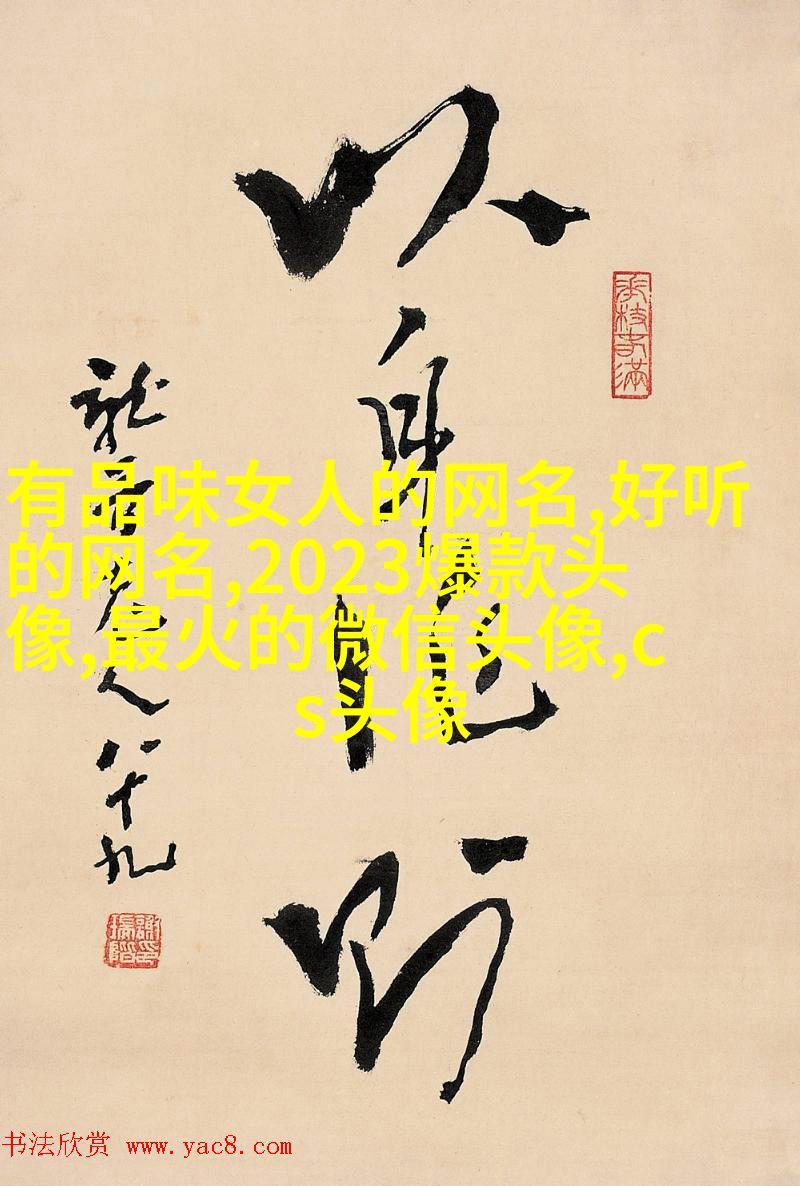 以身
有品味女人的网名,好听
的网名,2023爆款头
像,最火的微信头像,c
s头像
人八十九
书法欣赏 www.yac8.com